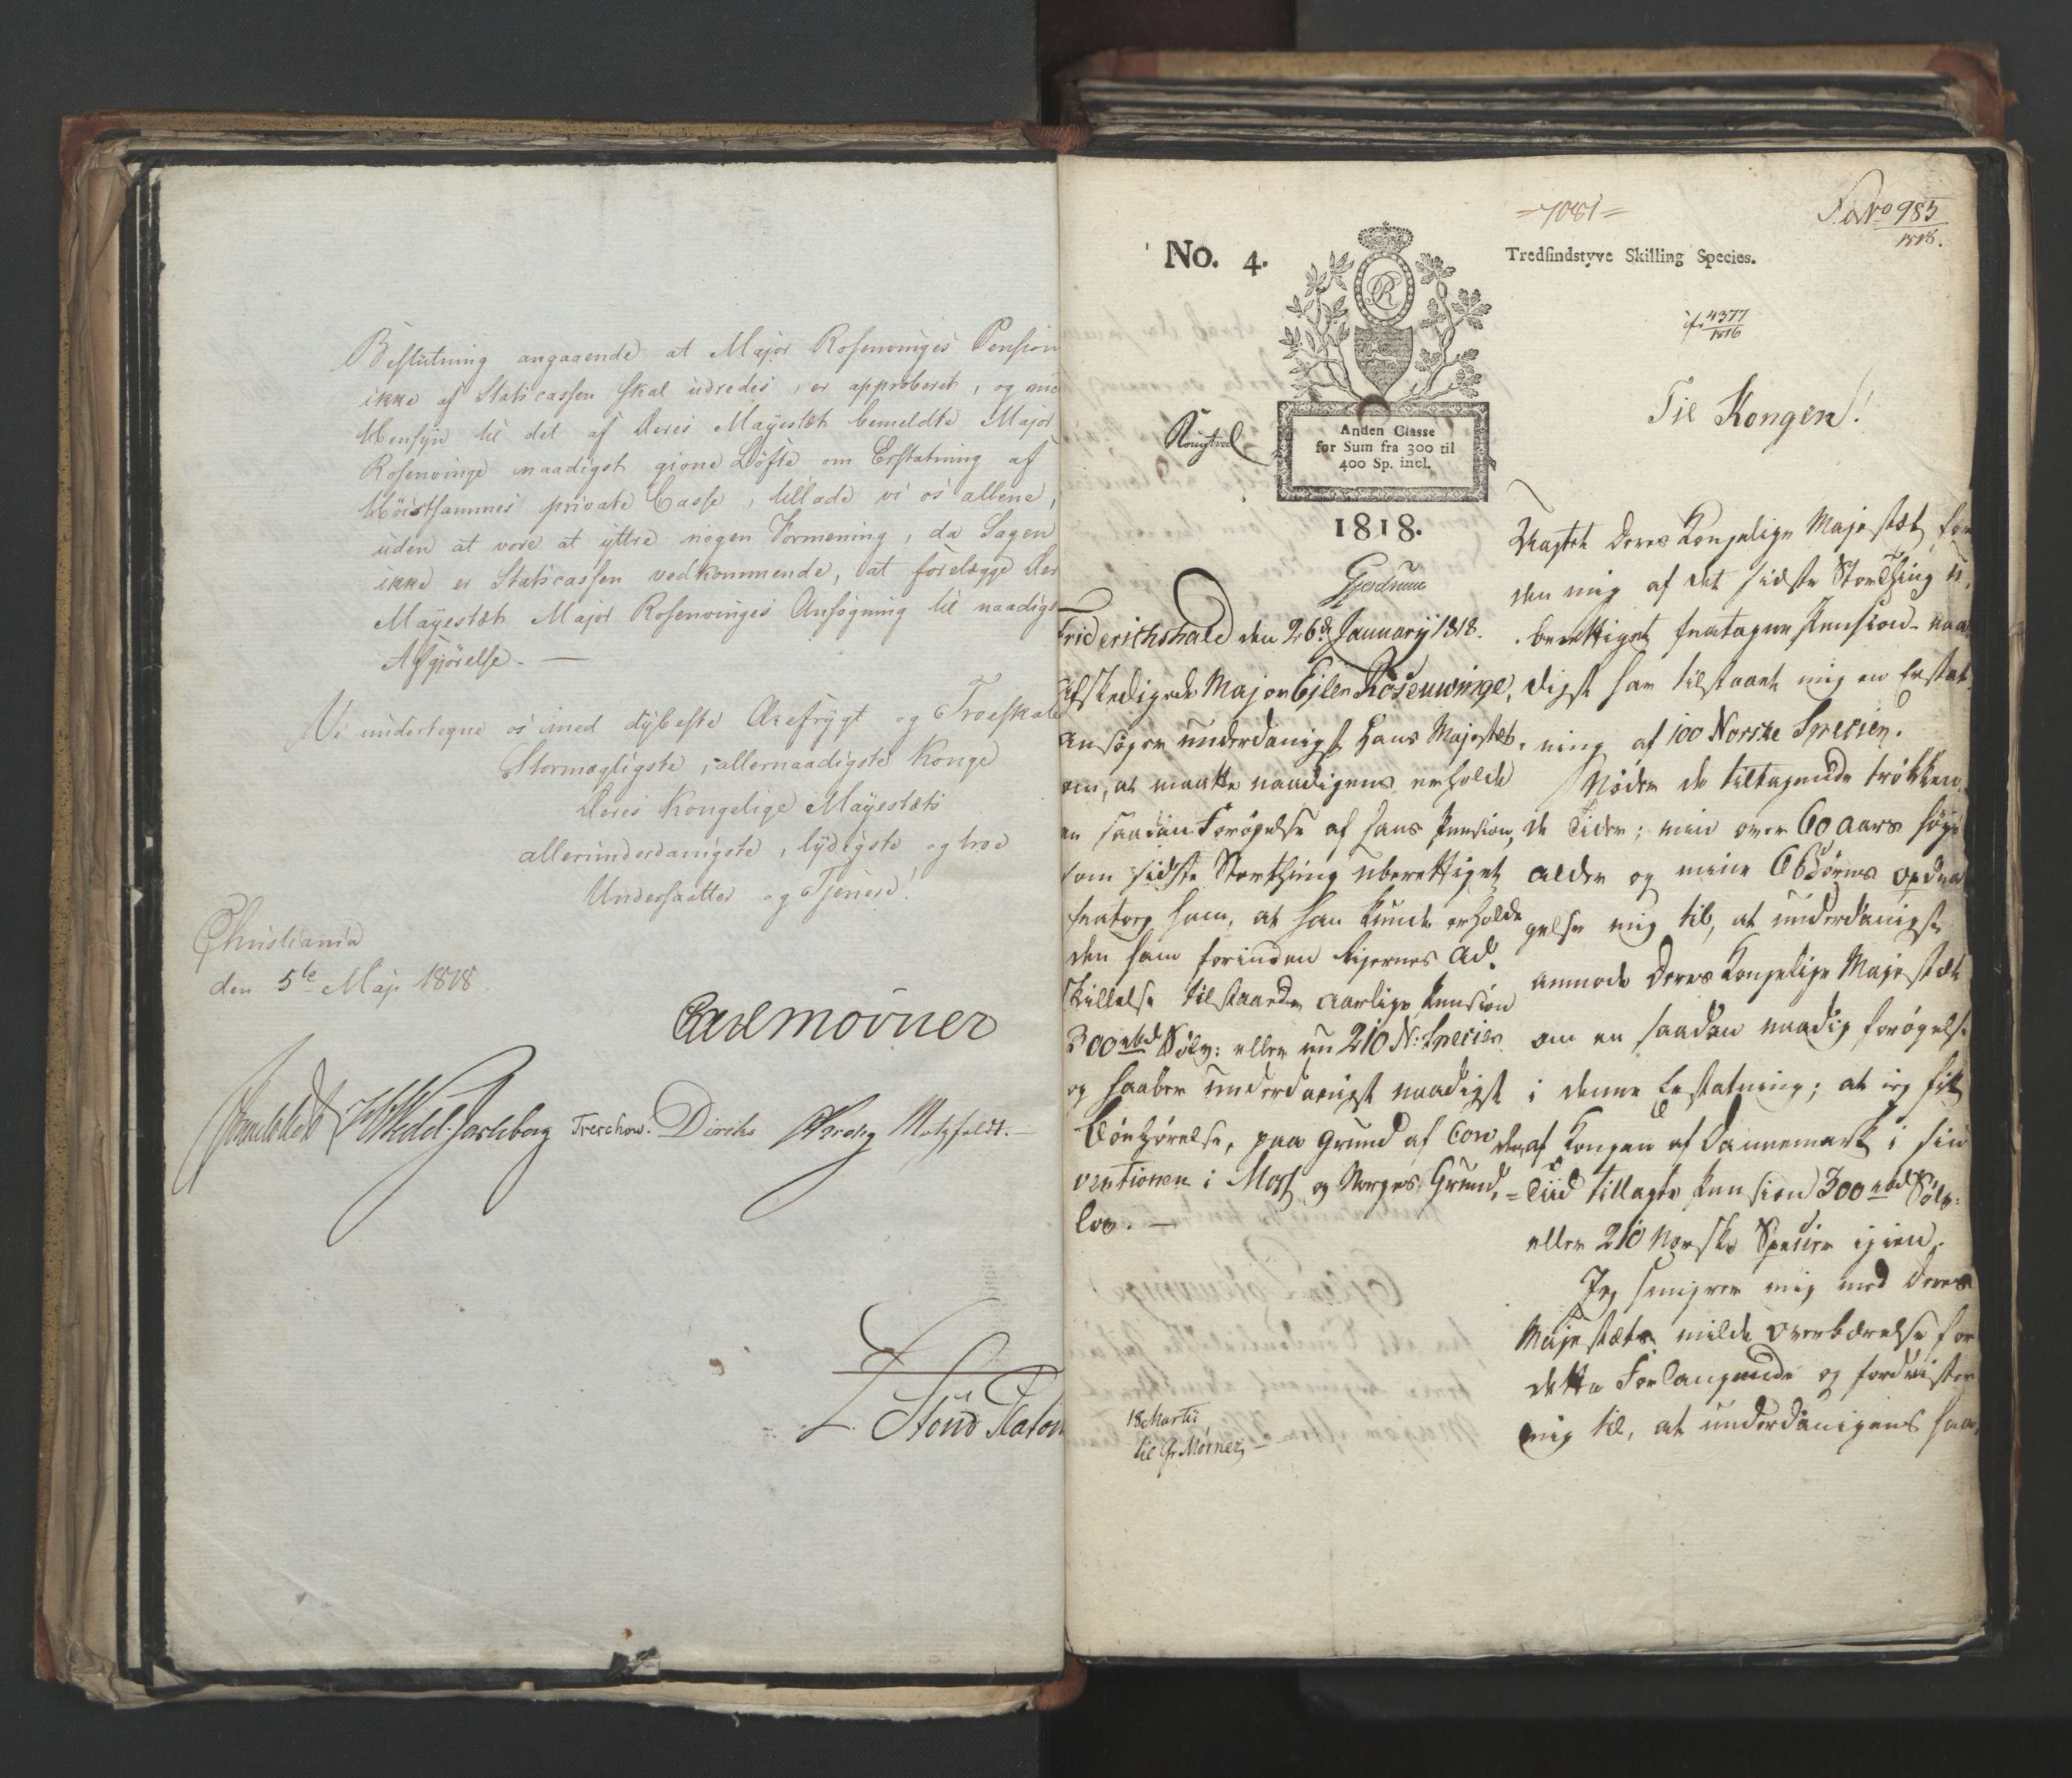 Beslutning angaaende at Major Rosenvinges Pension
ikke af Statscassen skal udredes, er approberet, og med
Hensyn til det af Deres Mayestæt bemeldte Major
Rosenvinge naadigst givne Løfte om Erstatning af
Høistsammes private Casse, tillade vi os allene,
uden at vove at yttre nogen Formening, da Sagen
ikke er Statscassen vedkommende, at forelægge Der
Mayestæt Major Rosenvinges Ansøgning til naadigs
Afgjørelse. —
Vi undertegne os med dybeste Ærefrygt og Troeskab
Stormægtigste, allernaadigste Konge
Deres Kongelige Mayestæts
allerunderdanigste, lydigste og troe
Undersaatter og Tjenere!
Christiania
den 5te May 1818.
Carl Mörner
Sommerhielm HWedel-Jarlsberg Treschow. Diriks PMotzfeldt.
=7081=
No 985
1818.
No. 4.
Tredsindstyve Skilling Species.
cfr 4377
1816
Anden Classe
for Sum fra 300 til
400 Sp. incl.
1818.
Gjerdrum
Friderichshald den 26d Januarij 1818.
Afskedigede Major Ejler Rosenvinge,
ansøger underdanigst Hans Majestæt,
om, at maatte naadigens erholde
en saadan Forøgelse af hans Pension,
som sidste Storthing uberettiget
fratog ham, at han kunde erholde
den ham forinden Rigernes Ad-
skillelse tilstaaede aarlige Pension
300 rbd Sølv: eller nu 210 N: Specier
og haaber underdanigst naadigst
Bønhørelse, paa Grund af Con-
ventionen i Moss og Norges Grund-
lov. —
18 Martii
til Gr Mörner —
Til Kongen!
Vagtet Deres Kongelige Majestæt for
den mig af det sidste Storthing u-
berettiget fratagne Pension - naa-
digst har tilstaaet mig en Erstat-
ning af 100 Norske Specier.
Nøder de tiltagende trykken-
de Tider; min over 60 aars høje
alder og mine 6 Børns opdra-
gelse mig til, at underdanigst
anmode Deres Kongelige Majestæt
om en saadan naadig forøgelse
i denne Erstatning; at jeg fik
den af Kongen af Dannemark i sin
Tiid tillagte Pension 300 rbd Sølv:
eller 210 Norske Specier igien.
Jeg smigrer mig med Deres
Majestæts milde overbærelse for
dette Forlangende og fordrister
mig til, at underdanigens haa-